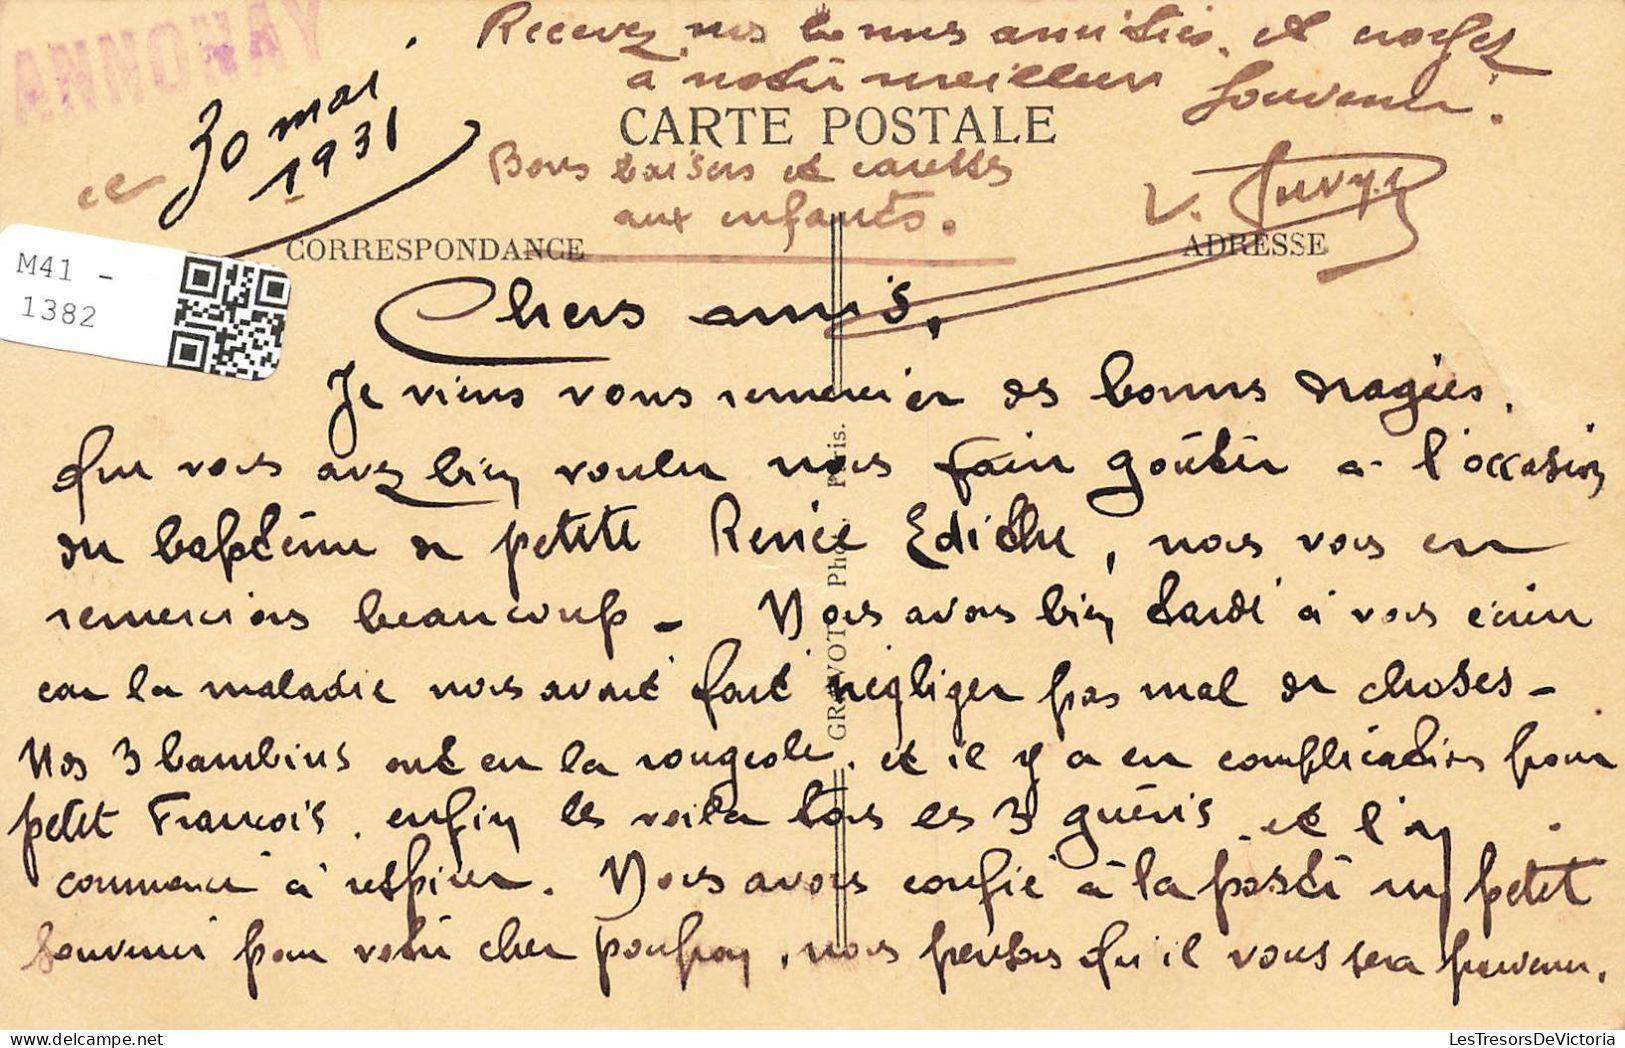 YAHONNA
ce 30 mai
1931
Recevez nos bonnes amitiés et croyez
à notre meilleur souvenir.
CARTE POSTALE
Bons baisers et caresses
aux enfants.
V.
CORRESPONDANCE
ADRESSE
M41 -
1382
Chers amis,
Je viens vous remercier des bonnes dragées.
que vous avez bien voulu nous faire goûter à l'occasion
du baptême de petite Renée Edithe, nous vous en
remercions beaucoup - Nous avons bien tardé à vous écrire
car la maladie nous avait fait négliger pas mal de choses -
Nos 3 bambins ont eu la rougeole. et il y a eu complications pour
petit François. enfin les voilà tous les 3 guéris. et l'on
commence à respirer. Nous avons confié à la poste un petit
souvenir pour votre cher poupon, nous pensons qu'il vous sera parvenu.
GRAVOT Phot. Paris.
LesTresorsDeVictoria